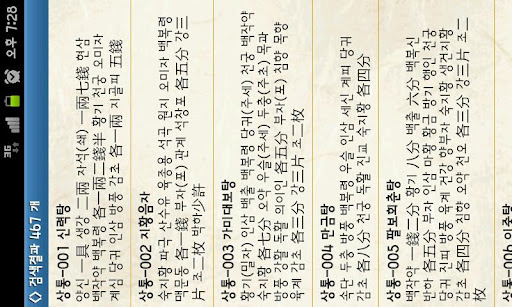 3G
오후 7:28
검색결과 467 개
상통-001 신력탕
양신 一具 생강 二兩 자석(쇄) 一兩七錢 현삼
백작약 백복령 各一兩二錢半 황기 천궁 오미자
계심 당귀 인삼 방풍 감초 各一兩 지골피 五錢
상통-002 지황음자
숙지황 파극 산수유 육종용 석곡 원지 오미자 백복령
맥문동 各一錢 부자(포) 관계 석창포 各五分 강三
片 조二枚 박하少許
상통-003 가미대보탕
황기(밀자) 인삼 백출 백복령 당귀(주세) 천궁 백작약
숙지황 各七分 오약 우슬(주세) 두충(주초) 목과
방풍 강활 독활 의이인 各五分 부자(포) 침향 목향
육계 감초 各三分 강三片 조二枚
상통-004 만금탕
속단 두충 방풍 백복령 우슬 인삼 세신 계피 당귀
감초 各八分 천궁 독활 진교 숙지황 各四分
상통-005 팔보회춘탕
백작약 一錢二分 황기 八分 백출 六分 백복신
반하 各五分 부자 인삼 마황 황금 방기 행인 천궁
당귀 진피 방풍 육계 건강 향부자 숙지황 생건지황
감초 各四分 침향 오약 천오 各三分 강三片 조二
枚
상통-006 이중탕